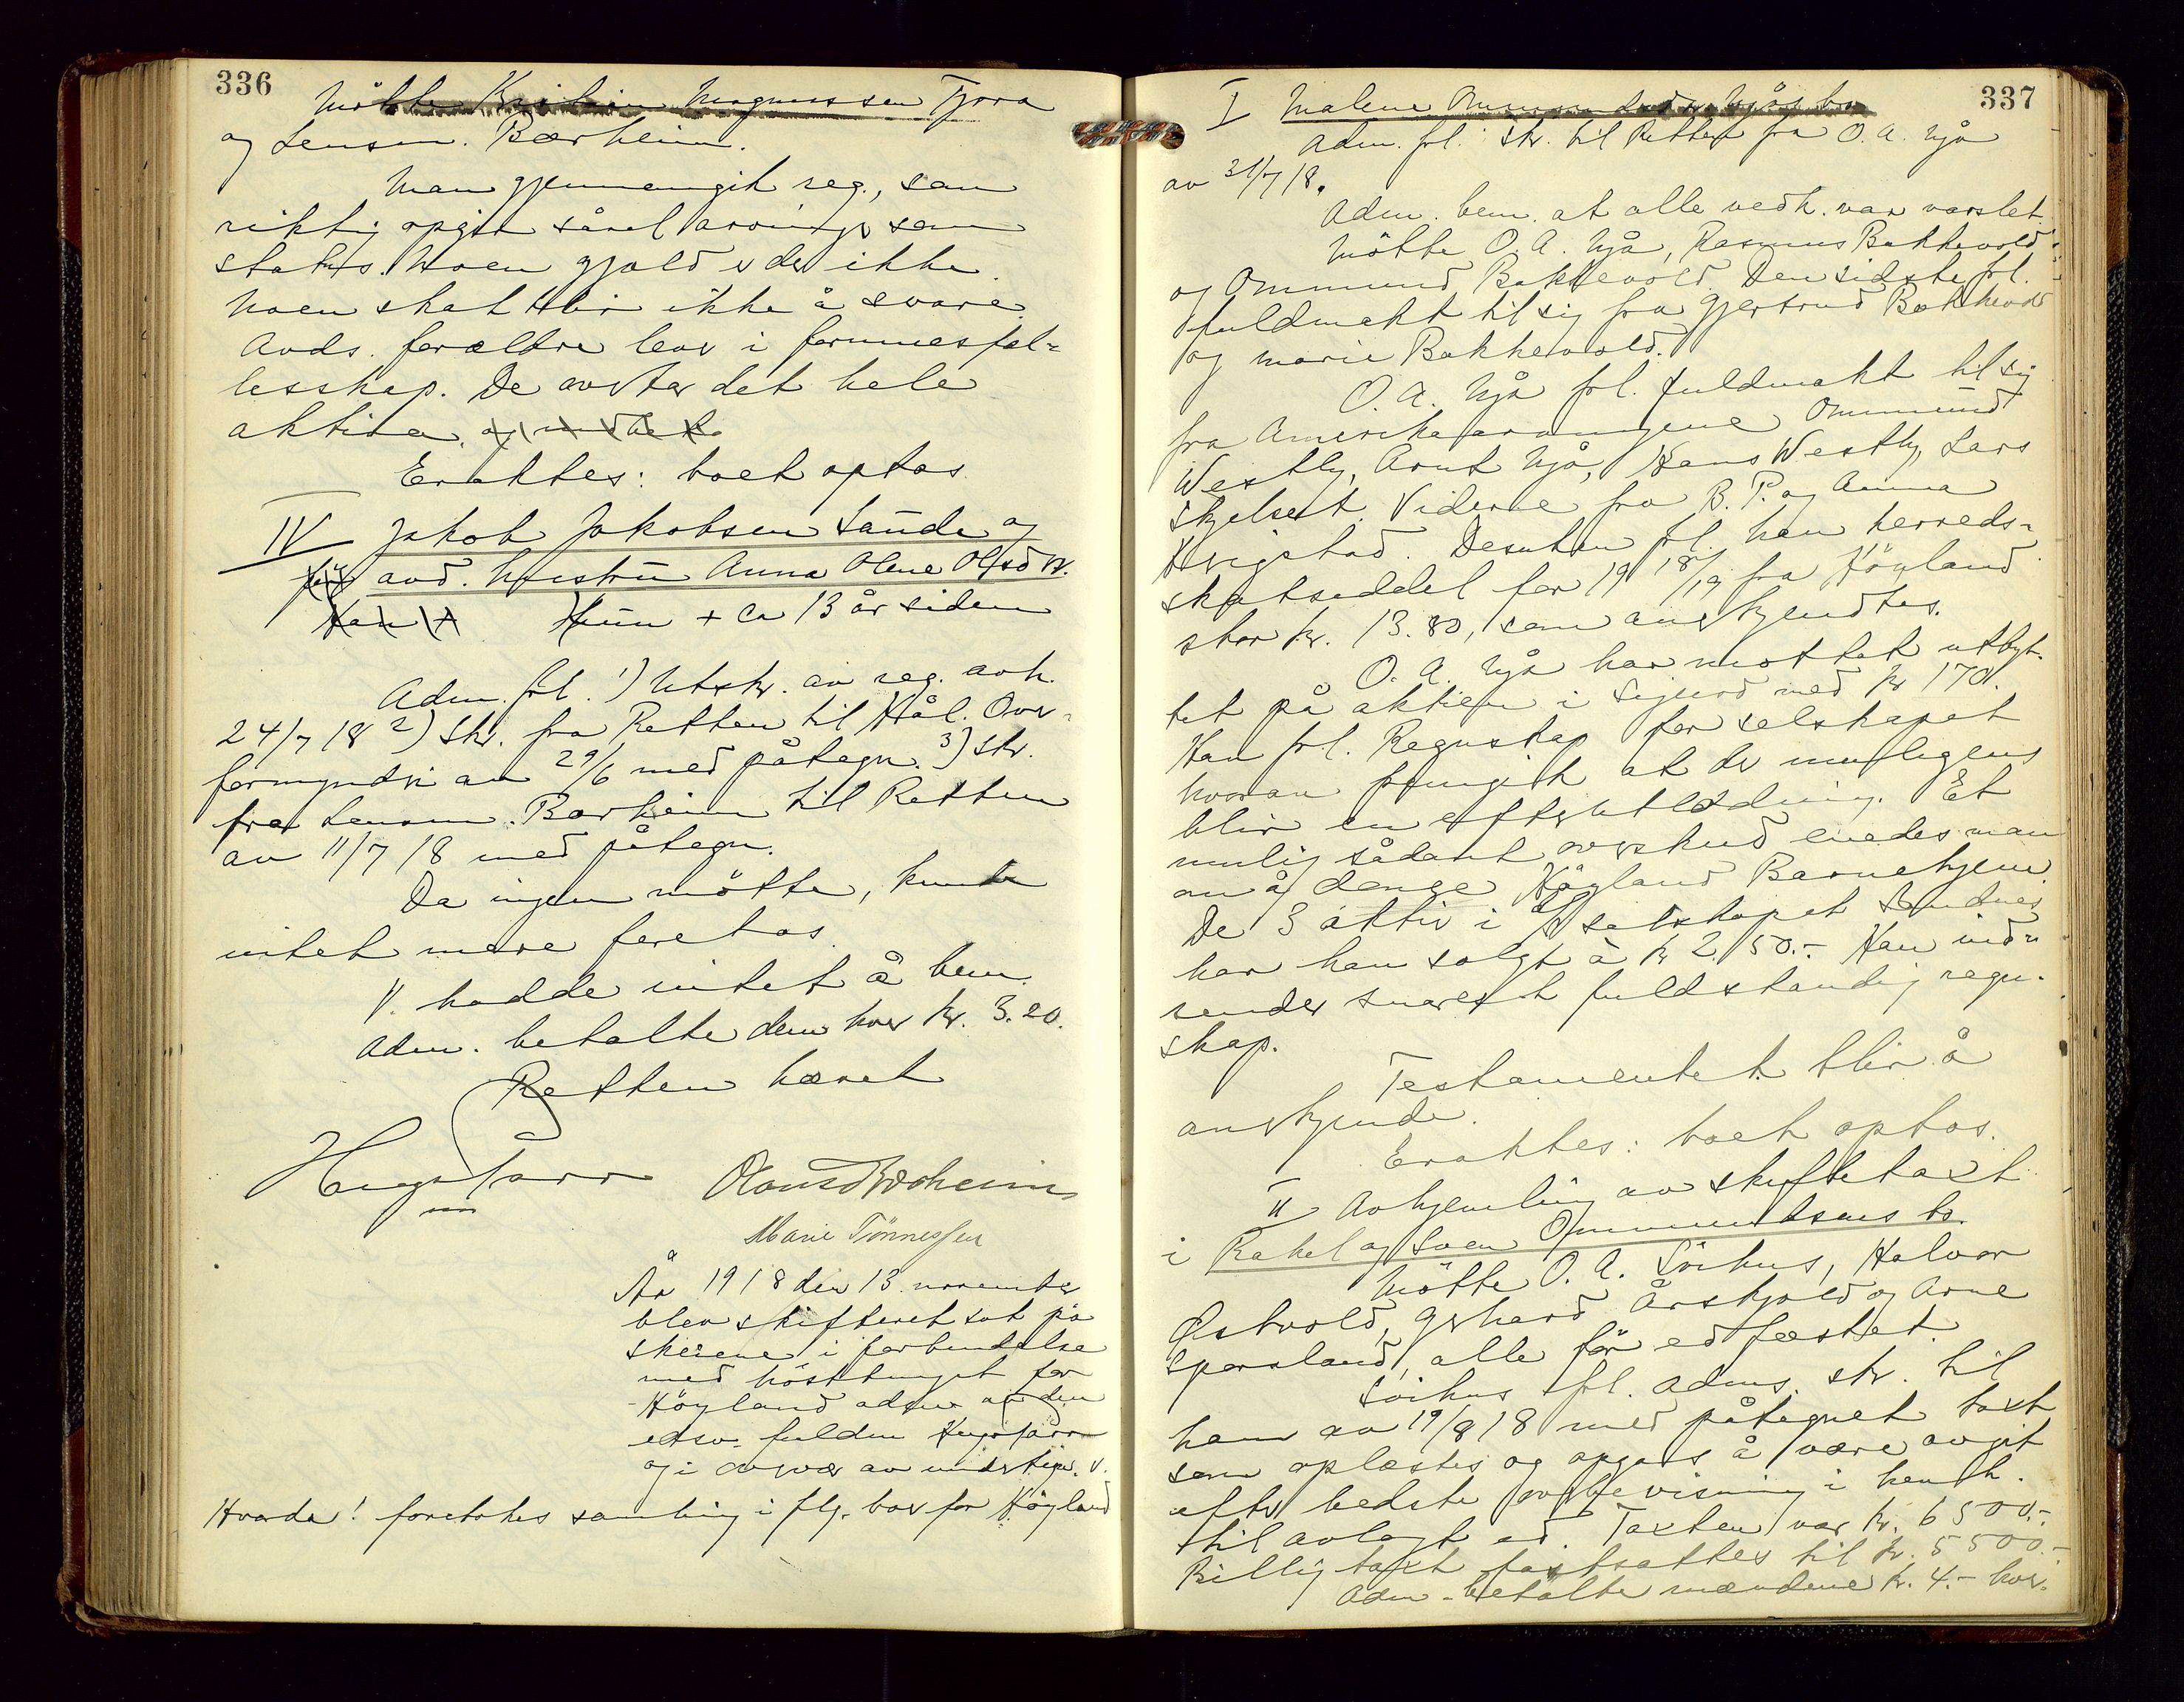 336
Møtte Kristian Magnussen Tjora
og Lensm. Bærheim.
Man gjennemgik reg., som
riktig opgir såvel arvinger som
status. Noen gjæld er der ikke.
Noen skat blir ikke å svare.
Avds. forældre lever i formuesfæl-
lesskap. De overtar det hele
aktiva.
Eraktes: boet optas.
IV Jakob Jakobsen Sande og
avd. hustru Anna Olene Olsdtr.
Hun + ca 13 år siden
Adm. frl. 1) Utskr. av reg. avh.
24/7 18 2) Skr. fra Retten til Hål. Over-
formynderi av 29/6 med påtegn. 3) Skr.
fra Lensm. Bærheim til Retten
av 11/7 18 med påtegn.
Da ingen møtte, kunde
intet mere foretas.
V. hadde intet å bem.
Adm. betalte dem hver kr. 3.20.
Retten hævet
Marie Tønnessen
År 1918 den 13. november
blev skifteret sat på
Skeiene i forbindelse
med høsttinget for
Høyland adm. av den
edsv. fuldm.
og i overvær av undertegn. v.
Hvorda! foretokes samling i flg. boer for Høyland
337
I Malene Ommundsdtr. Njås bo
Adm. frl. skr. til Retten fra O. A. Njå
av 31/7 18.
Adm. bem. at alle vedk. var varslet.
Møtte O. A. Njå, Rasmus Bakkevold
og Ommund Bakkevold. Den sidste frl.
fuldmakt til sig fra Gjertrud Bakkevold
og Marie Bakkevold.
O. A. Njå frl. fuldmakt til sig
fra Amerikaarvingene Ommund
Westly, Arnt Njå, Hans Westly, Lars
Skjelset. Videre fra B. P. og Anna
Desuten frl. han herreds-
skatseddel for 1918/19 fra Høyland
stor kr. 13.80, som anerkjendtes.
O. A. Njå har mottat utbyt-
tet på aktien i Sigurd med kr 170.
Han frl. Regnskap for selskapet
hvorav fremgik at der muligens
blir en efterutlodning. Et
mulig sådant overskud enedes man
om å denge Høyland Barnehjem.
De 3 aktier i A/S selskapet Sandnes
har han solgt à kr 250.- Han ind-
sender snarest fuldstændig regn-
skap.
Testamentet blir å
anerkjende.
Eraktes: boet optas.
II Avhjemling av skiftetaxt
i Rakel og Sven Ommundsens bo.
Møtte O. A. Sørhus, Halvor
Østvold, Gerhard Årskjold og Arne
Sporaland, alle før edfæstet.
Sørhus frl. adms. skr. til
ham av 19/9 18 med påtegnet taxt
som oplæstes og opgavs å være avgit
efter bedste overbevisning i henh.
til avlagt ed. Taxten var kr. 6500.-
Billig taxt fastsattes til kr. 5500.-
Adm. betalte mændene kr. 4.- hver.